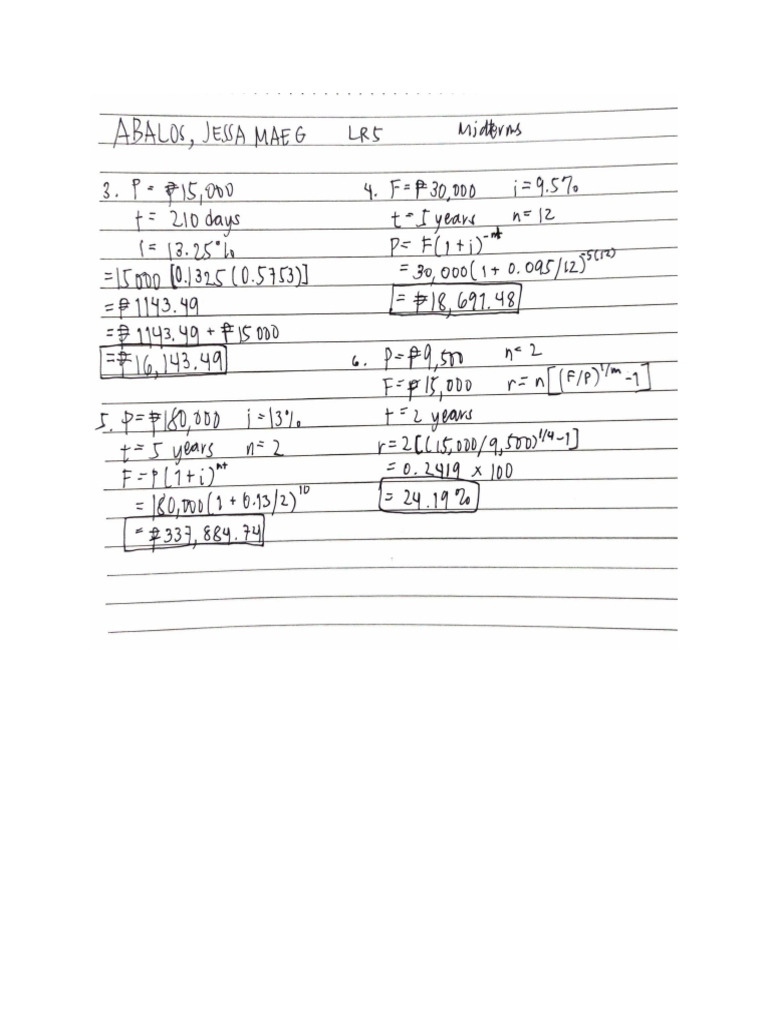 ABALOS, JESSA MAE G LR5 Midterms
3. P = ₱15,000
t = 210 days
i = 13.25%
= 15000 [0.1325 (0.5753)]
= ₱1143.49
= ₱1143.49 + ₱15000
= ₱16,143.49
4. F = ₱30,000 i = 9.5%
t = 5 years n = 12
P = F(1+i)^-nt
= 30,000(1 + 0.095/12)^-5(12)
= ₱18,691.48
5. P = ₱180,000 i = 13%
t = 5 years n = 2
F = P(1+i)^nt
= 180,000(1 + 0.13/2)^10
= ₱337,884.74
6. P = ₱9,500 n = 2
F = ₱15,000 r = n[(F/P)^1/m -1]
t = 2 years
r = 2[((15,000/9,500)^1/4 -1]
= 0.2419 x 100
= 24.19%